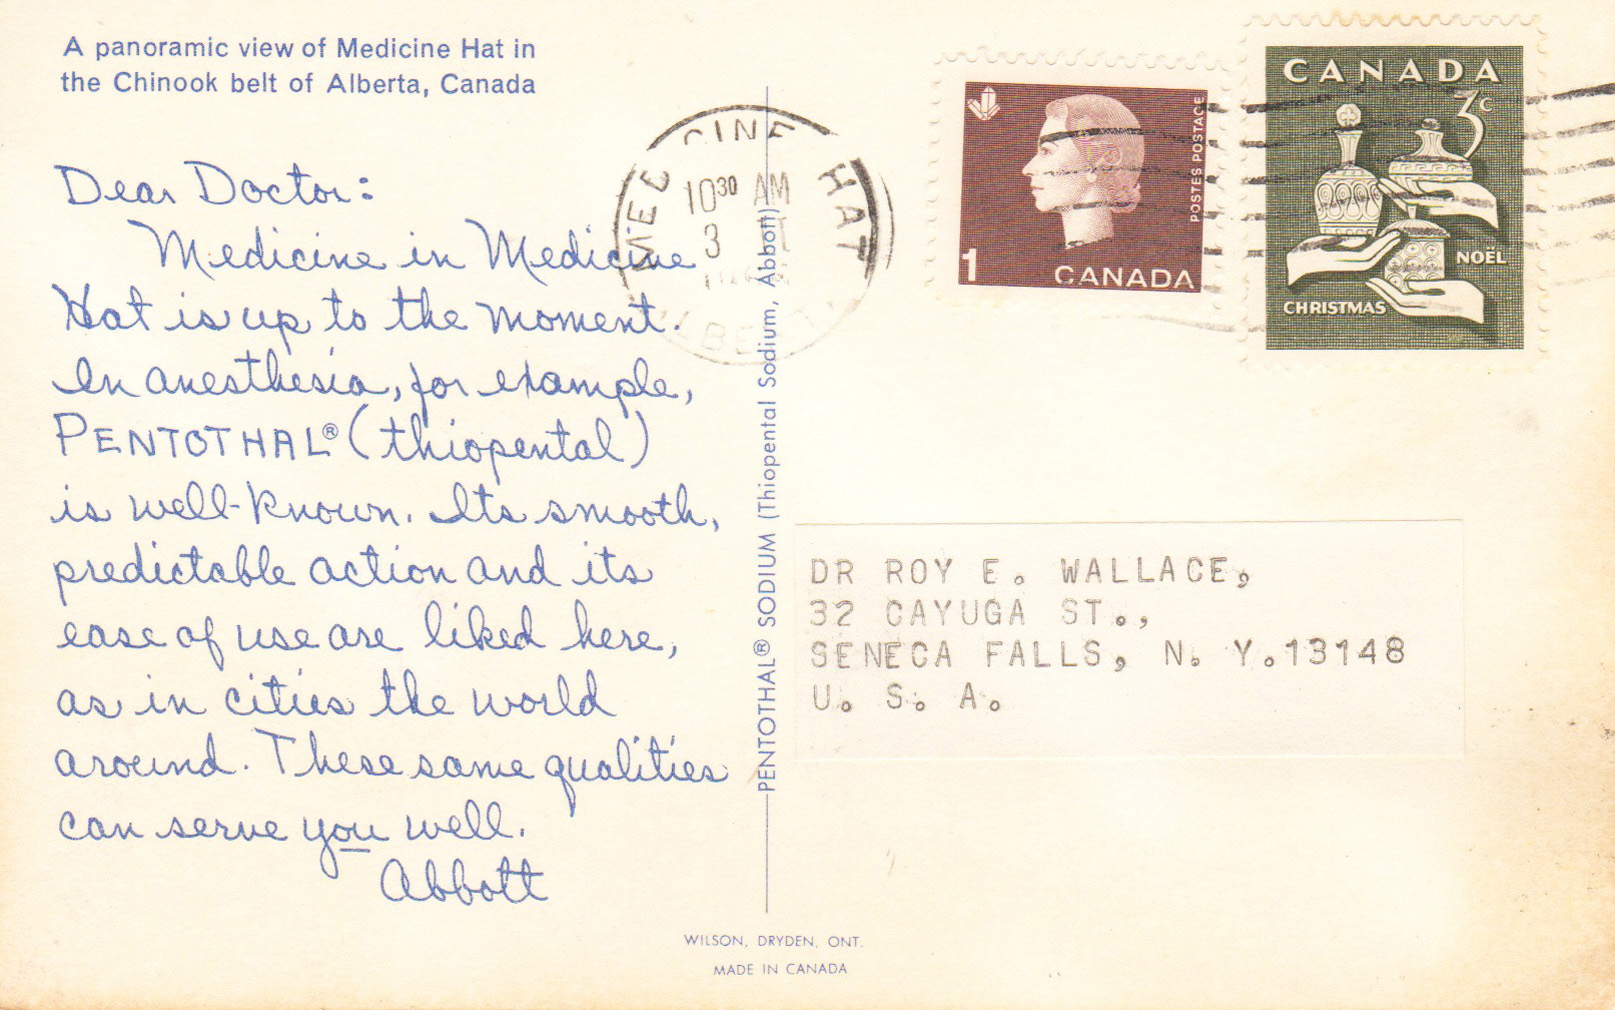 A panoramic view of Medicine Hat in
the Chinook belt of Alberta, Canada
Dear Doctor:
Medicine in Medicine
Hat is up to the moment.
In anesthesia, for example,
PENTOTHAL® (thiopental)
is well-known. Its smooth,
predictable action and its
ease of use are liked here,
as in cities the world
around. These same qualities
can serve you well.
Abbott
PENTOTHAL® SODIUM (Thiopental Sodium, Abbott)
WILSON, DRYDEN, ONT.
MADE IN CANADA
HAT
10 30 AM
3
1
CANADA
POSTES POSTAGE
CANADA
3c
NOËL
CHRISTMAS
DR ROY E. WALLACE,
32 CAYUGA ST.,
SENECA FALLS, N. Y.13148
U. S. A.